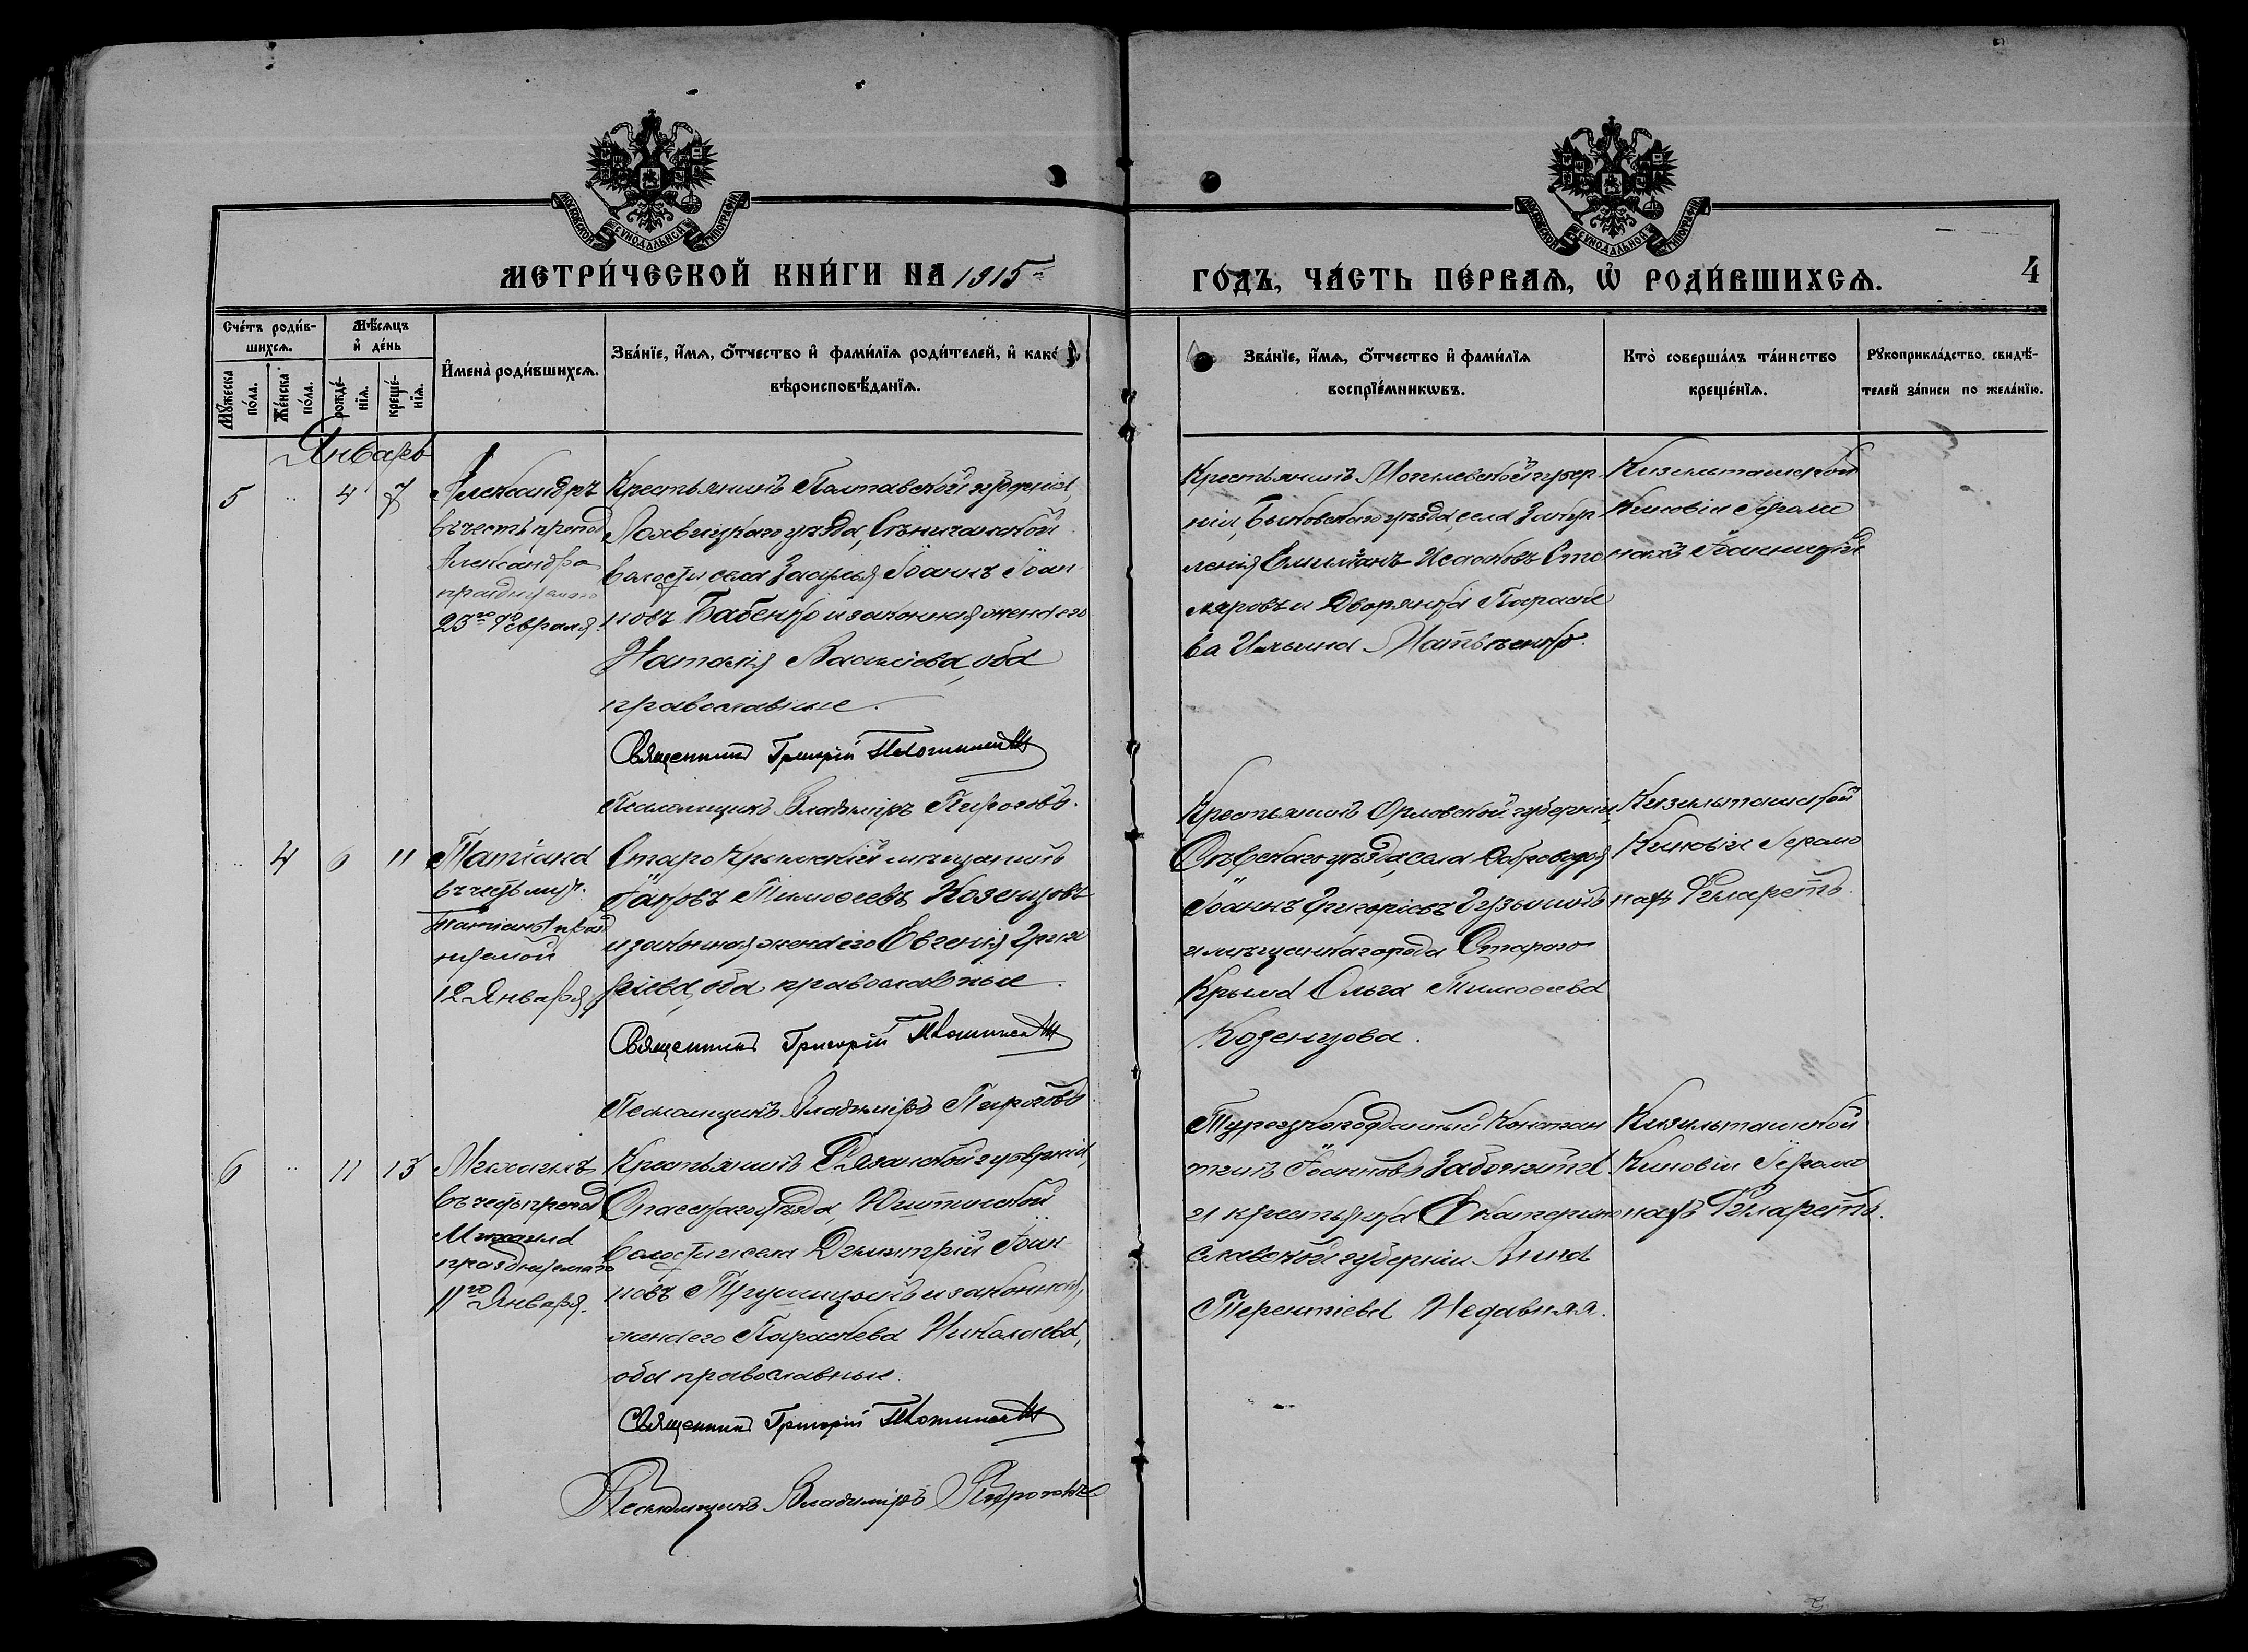 МОСКОВСКОЙ СѴНОДАЛЬНОЙ ТИПОГРАФІИ
МОСКОВСКОЙ СѴНОДАЛЬНОЙ ТИПОГРАФІИ
МЕТРИ́ЧЕСКОЙ КНИ́ГИ НА 1915
ГО́ДЪ, ЧА́СТЬ ПЕ́РВАѦ, Ѡ҆ РОДИ́ВШИХСѦ. 4
Сче́тъ роди́в-
шихсѧ.
Мѣ́сѧцъ
и҆ де́нь
Мꙋ́жеска по́ла.
Же́нска по́ла.
рожде́-
нїѧ.
креще́-
нїѧ.
И҆мена̀ роди́вшихсѧ.
Зва́нїе, и҆́мѧ, ѻ҆́тчество и҆ фами́лїѧ роди́телей, и҆ како́
вѣроисповѣ́данїѧ.
Зва́нїе, и҆́мѧ, ѻ҆́тчество и҆ фами́лїѧ
воспрїе́мникѡвъ.
Кто̀ соверша́лъ та́инство
креще́нїѧ.
Рꙋкоприкла́дство свидѣ́-
телей за́писи по жела́нїю.
Январь
5 " 4 7
Александръ
въ честь препод
Александра
празднуемаго
23го Февраля.
Крестьянинъ Полтавской губерніи,
Лохвицкаго уѣзда, Сѣнчанской
волости, села Заорья Іоаннъ Іоан
новъ Бабенко и законная жена его
Наталія Василіева, оба
православные.
Священникъ Григорій
Псаломщикъ Владиміръ Пироговъ.
Крестьянинъ Могилевской губер
ніи, Быховскаго уѣзда, села
Емиліанъ Исааковъ Сто
ляровъ и Дворянка Параске
ва Ильина Матвѣенко.
Кизильташской
Киновіи Іеромо
нахъ Іоанникій
" 4 6 11
Татіана
въ честь муч.
Татіаны празд
нуемой
12 Января,
Старо Крымскій мѣщанинъ
Іаковъ Тимоѳеевъ Козенцовъ
и законная жена его Евгенія Григо
ріева, оба православные.
Священникъ Григорій
Псаломщикъ Владиміръ Пироговъ
Крестьянинъ Орловской губерніи,
Сѣвскаго уѣзда, села Доброводья
Іоаннъ Григоріевъ Гузынинъ
и мѣщанка города Стараго
Крыма Ольга Тимоѳеева
Козенцова.
Кизильташской
Киновіи Іеромо
нахъ Филаретъ.
6 " 11 13
Михаилъ
въ честь препод
Михаила
празднуемаго
11го Января.
Крестьянинъ Рязанской губерніи,
Спасскаго уѣзда, Ижтинской
волости и села Димитрій Іоан
новъ и законная
жена его Параскева Николаева,
оба православные.
Священникъ Григорій
Псаломщикъ Владиміръ Пироговъ
Турецкоподданный Констан
тинъ Іоанновъ
и крестьянка Екатерино
славской губерніи Анна
Терентіева Недавняя.
Кизильташской
Киновіи Іеромо
нахъ Филаретъ.